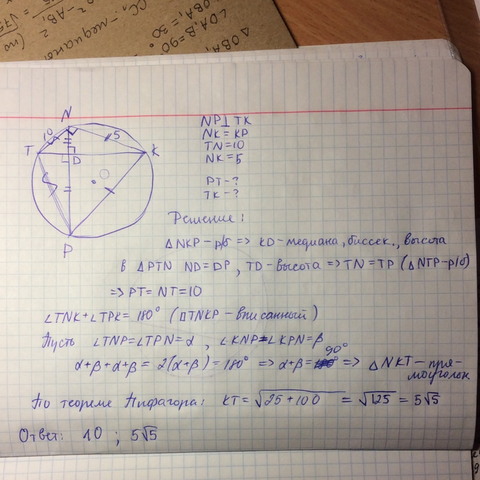 N
10
5
T
D
K
O
P
NP⊥TK
NK=KP
TN=10
NK=5
PT-?
TK-?
Решение:
△NKP-р/б => KD-медиана, биссек., высота
в △PTN ND=DP, TD-высота => TN=TP (△NTP-р/б)
=> PT=NT=10
∠TNK+∠TPK=180° (▯TNKP-вписанный)
Пусть ∠TNP=∠TPN=α, ∠KNP=∠KPN=β
α+β+α+β=2(α+β)=180° => α+β=90° => △NKT-пря-
моугольн.
По теореме Пифагора: KT=√25+100 =√125=5√5
Ответ: 10 ; 5√5